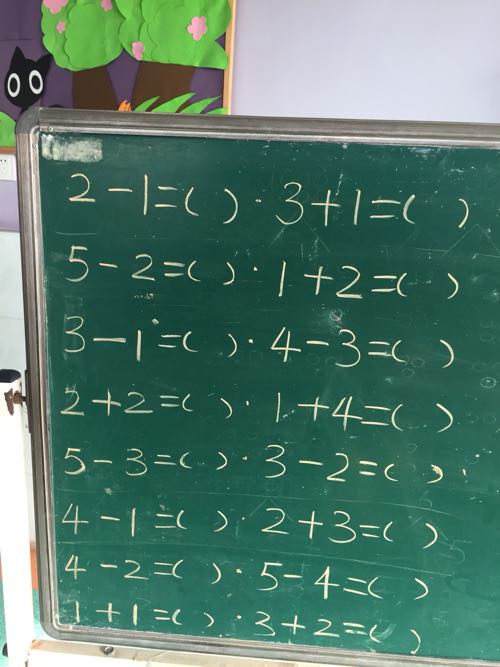 2-1=( ) · 3+1=( )
5-2=( ) · 1+2=( )
3-1=( ) · 4-3=( )
2+2=( ) · 1+4=( )
5-3=( ) · 3-2=( ) ·
4-1=( ) · 2+3=( )
4-2=( ) · 5-4=( )
1+1=( ) · 3+2=( )